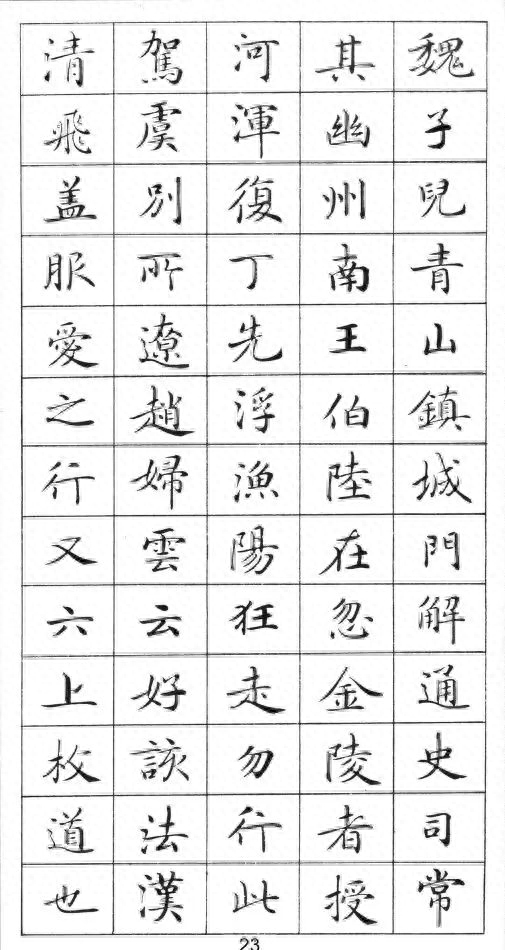 魏子兒青山鎮城門解通史司常
其幽州南王伯陸在忽金陵者授
河渾復丁先浮漁陽狂走勿行此
駕虞別所遼趙婦雲云好該法漢
清飛盖服愛之行又六上枚道也
23